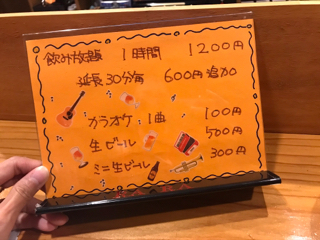 飲み放題 1時間 1200円
延長30分毎 600円追加
カラオケ 1曲 100円
生ビール 500円
ミニ生ビール 300円